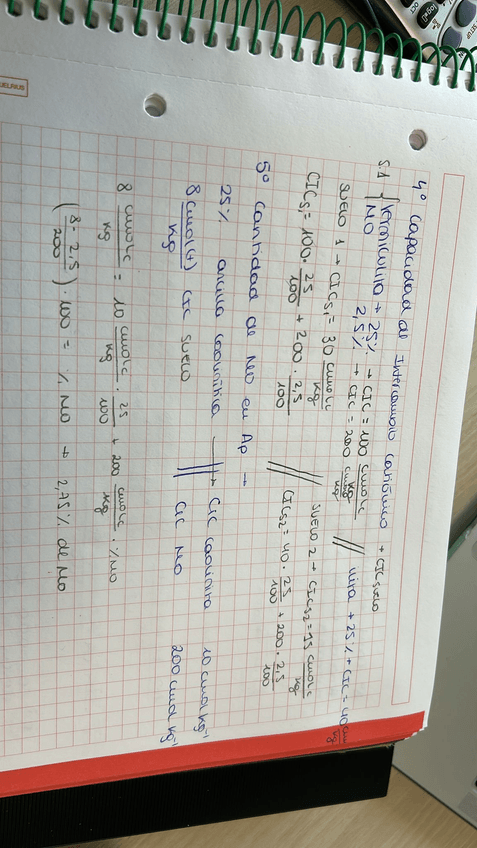 4º Capacidad de Intercambio Catiónico → CIC suelo
S.1 { Vermiculita → 25% → CIC = 100 cmolc/kg // mica → 25% → CIC = 40 cmolc/kg
MO 2,5% → CIC = 200 cmolc/kg
Suelo 1 → CICS1 = 30 cmolc/kg // Suelo 2 → CICS2 = 15 cmolc/kg
CICS1 = 100 · 25/100 + 200 · 2,5/100 // CICS2 = 40 · 25/100 + 200 · 2,5/100
5º Cantidad de MO en Ap →
25% arcilla caolinítica → CIC caolinita 10 cmol kg-1
8 cmol(+)/kg CIC suelo // CIC MO 200 cmol kg-1
8 cmolc/kg = 10 cmolc/kg · 25/100 + 200 cmolc/kg · % MO
(8 - 2,5/200) · 100 = % MO → 2,75% de MO